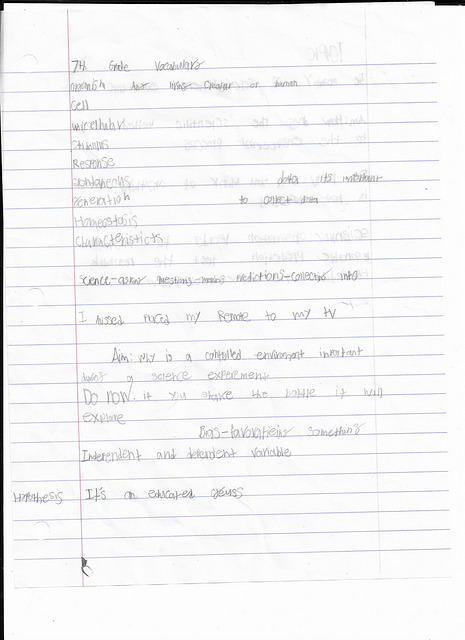 7th Grade Vocabulary
Any living creature or human
Cell
unicellular
Stimulus
Response
Spontaneous data its important
generation to collect data
Homeostasis
Characteristicts
Science-asking questions-making predictions-collecting info
I missed placed my Remote to my tv
Aim: Why is a controlled environment important
a science experement
Do now: if you shake the bottle it will
explode
Bias-favoratieing something
Independent and dependent variable
It's an educated geuss